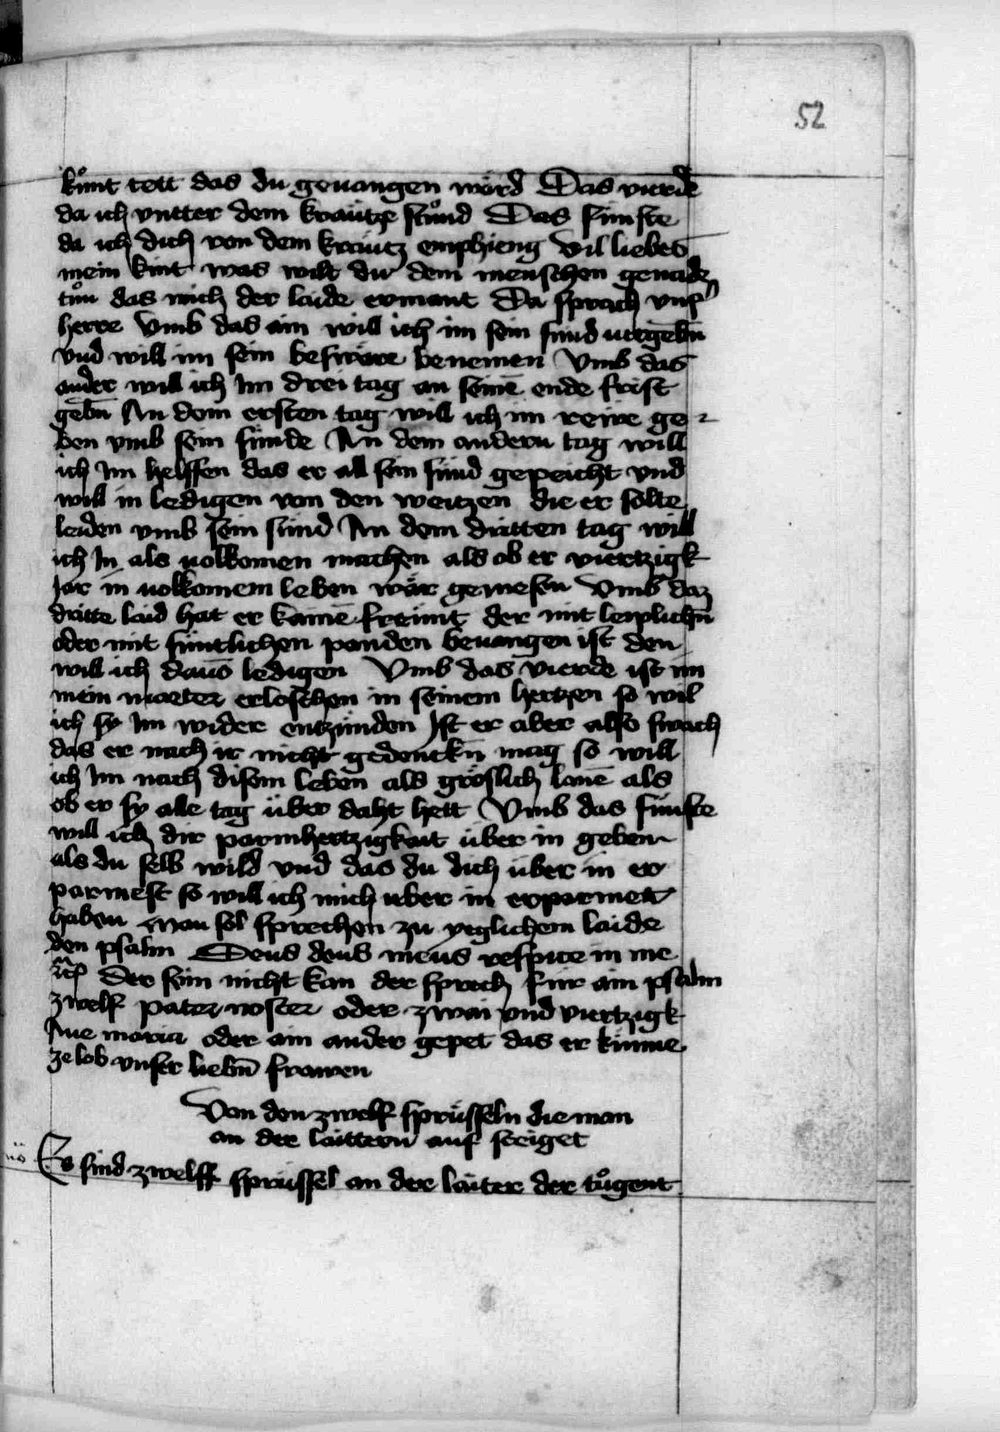 52
kůnt tett das du geuangen wörd Das vierde
da ich vntter dem kraẅtze stůnd Das fünfte
da ich dich von dem kraütz emphieng Vil liebes
mein kint was wilt du dem menschen genade
tůn das mich der laide ermant Da sprach vnser
herre Vmb das ain will ich im sein sünd uergebn̄
vnd will im sein beswäre benemen Vmb das
ander will ich Im drei tag an seinē ende frist
gebn̄ An dem ersten tag will ich im reẅe ge-
ben vmb sein sünde An dem andern tag will
ich Im helffen das er all sein sünd gepeicht vnd
will in ledigen von den weitzen die er solte
leiden vmb sein sünd An dem dritten tag will
ich In als uolkomen machen als ob er viertzigk
Jar in uolkomem leben wär gewesen Vmb daz
dritte laid hat er kainē freünt der mit leiplichn̄
oder mit süntlichen panden beuangen ist den
will ich daus ledigen Vmb das vierde ist im
mein marter erloschen in seinem hertzen so wil
ich sy Im wider entzünden Ist er aber also swach
das er nach ir nicht gedenckn̄ mag so will
ich Im nach disem leben als gröslich lonē als
ob er sy alle tag über daht hett Vmb das fünfte
will ich dir parmhertzigkait über in geben
als du selb wild vnd das du dich über in er
parmest so will ich mich uber in erparmet
haben Man sol sprechen zu yeglichem laide
den psalm Deus deus meus respice in me
etc̄ Der sein nicht kan der sprech für ain psalm
zwelf pater noster oder zwai vnd viertzigk
Aue maria oder ain ander gepet das er künne
ze lob vnser liebn̄ frawen
Von den zwelf sprüsseln die man
an der laittern auf steiget
Es sind zwelff sprüssel an der laiter der tůgent